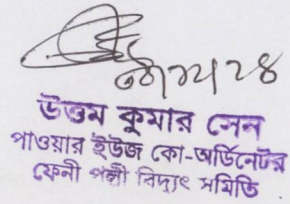 উত্তম কুমার সেন
পাওয়ার ইউজ কো-অর্ডিনেটর
ফেনী পল্লী বিদ্যুৎ সমিতি